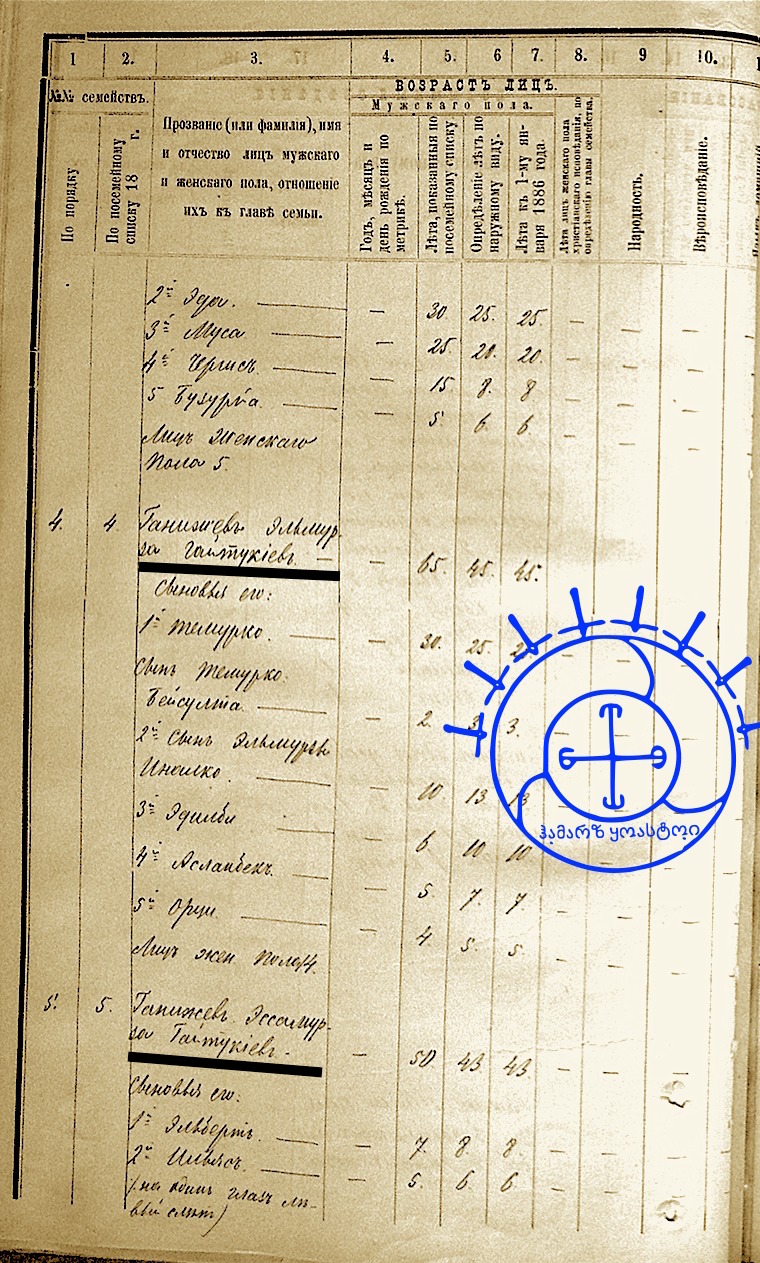 1 2. 3. 4. 5. 6 7. 8. 9 10.
№№ семействъ.
По порядку
По посемейному списку 18 г.
Прозваніе (или фамилія), имя
и отчество лицъ мужскаго
и женскаго пола, отношеніе
ихъ къ главѣ семьи.
ВОЗРАСТЪ ЛИЦЪ.
Мужскаго пола.
Годъ, мѣсяцъ и
день рожденія по
метрикѣ.
Лѣта, показанныя по
посемейному списку.
Опредѣленіе лѣтъ по
наружному виду.
Лѣта къ 1-му ян-
варя 1886 года.
Лѣта лицъ женскаго пола
христіанскаго исповѣданія, по
опредѣленію главы семейства.
Народность.
Вѣроисповѣданіе.
2й — 30. 25. 25. — — —
3й Муса — — 25. 20. 20. — — —
4й Чергисъ — — 15 8. 8 — — —
5 Бузурка — — 5 6. 6. — — —
Лицъ Женскаго
Пола 5.
4. 4 Ганижевъ Эльмур-
за Гайтукіевъ. — — 65. 45. 45.
Сыновья его:
1й Темурко. — — 30. 25
Сынъ Темурко.
Бейсулта. — — 2. 3. 3.
2й Сынъ Эльмурзы
Иналко. — — 10 13 13
3й Эдилби — — 6 10 10
4й Асланбекъ — — 5. 7. 7. — — —
5й Орци — — 4 5. 5. — — —
Лицъ жен. пола 4.
5. 5. Ганижевъ Эссамур-
за Гайтукіевъ. — 50 43 43. — — —
Сыновья его:
1й Эльбертъ. — — 7. 8. 8. — — —
2й Ильясъ. — — 5. 6 6. — — —
(на одинъ глазъ лѣ-
вый слѣпъ)
ჰამარზ ყოასტოჲი